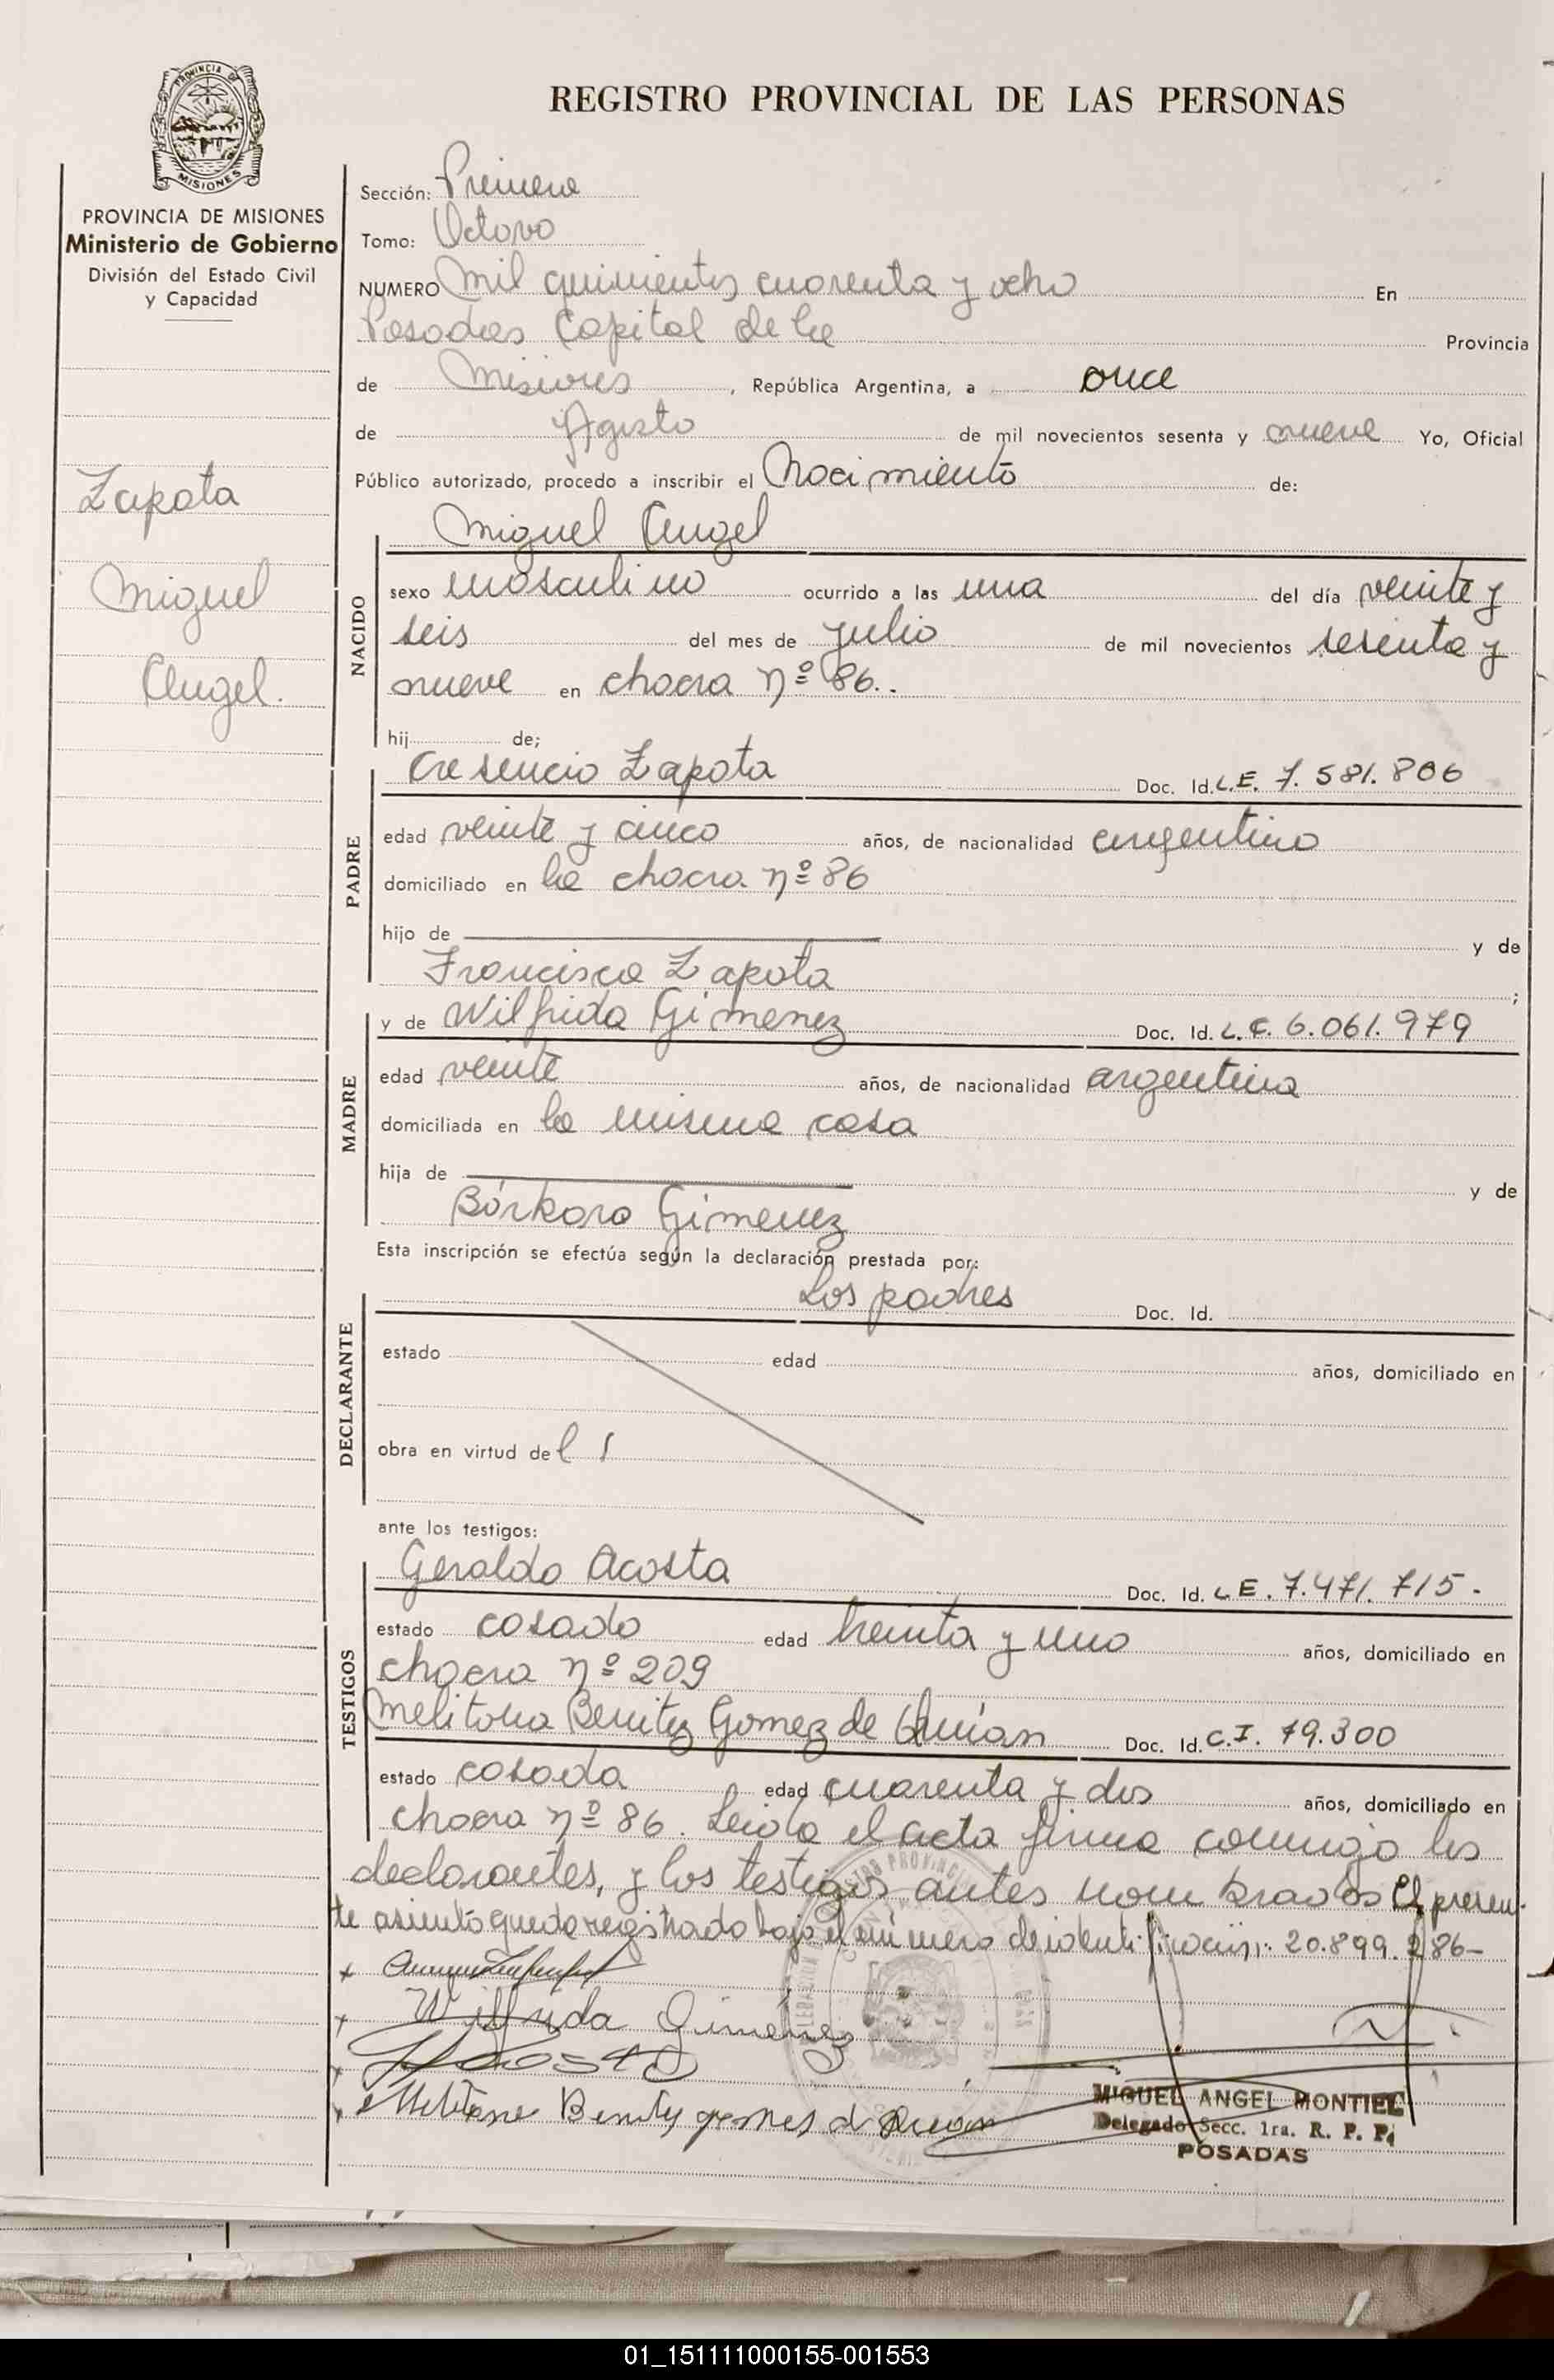 REGISTRO PROVINCIAL DE LAS PERSONAS
PROVINCIA DE
MISIONES
PROVINCIA DE MISIONES
Ministerio de Gobierno
División del Estado Civil
y Capacidad
Zapata
Miguel
Angel.
Sección: Primera
Tomo: Octavo
NUMERO Mil quinientos cuarenta y ocho En
Posadas Capital de la Provincia
de Misiones, República Argentina, a once
de Agosto de mil novecientos sesenta y nueve Yo, Oficial
Público autorizado, procedo a inscribir el Nacimiento de:
Miguel Angel
NACIDO
sexo masculino ocurrido a las una del día veinte y
seis del mes de julio de mil novecientos sesenta y
nueve en chacra nº 86..
hij de;
PADRE
Cresencio Zapata Doc. Id. L.E. 7.581.806
edad veinte y cinco años, de nacionalidad argentino
domiciliado en la chacra nº 86
hijo de y de
Francisca Zapata ;
MADRE
y de Wilfrida Gimenez Doc. Id. L.C. 6.061.979
edad veinte años, de nacionalidad argentina
domiciliada en la misma casa
hija de y de
Bárbara Gimenez
Esta inscripción se efectúa según la declaración prestada por:
DECLARANTE
Los padres Doc. Id.
estado edad años, domiciliado en
obra en virtud de
ante los testigos:
TESTIGOS
Geraldo Acosta Doc. Id. L.E. 7.471.715-
estado casado edad treinta y uno años, domiciliado en
chacra nº 209
Melitona Benitez Gomez de Doc. Id. C.I. 79.300
estado casada edad cuarenta y dos años, domiciliado en
chacra nº 86. Leida el acta firma conmigo los
declarantes, y los testigos antes nombrados El presen-
te asiento queda registrado bajo el número de identificación: 20.899.286-
Wilfrida Giménez
Acosta
Benites gomes d
MIGUEL ANGEL MONTIEL
Delegado Secc. 1ra. R. P. P.
POSADAS
01_151111000155-001553